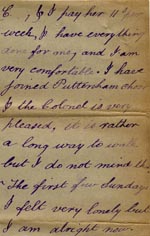 E., & I pay her 11/- per
week, I have everything
done for me, and I am
very comfortable. I have
joined Puttenham choir
& the Colonel is very
pleased, it is rather
a long way to walk
but I do not mind th
The first few Sundays
I felt very lonely but
I am alright now